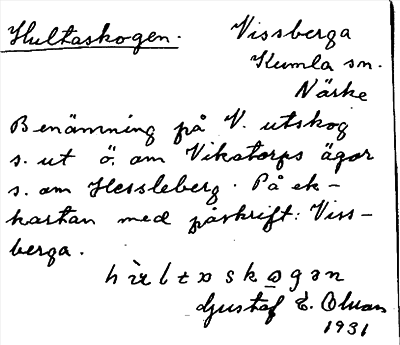 Hultaskogen.
Vissberga
Kumla sn.
Närke
Benämning på V. utskog
s. ut ö. om Vikatorps ägor
s. om Hessleberg. På ek-
kartan med påskrift: Viss-
berga.
Gustaf E. Olvan
1931